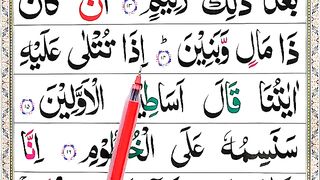 بَعْدَ ذٰلِكَ زَنِيْمٍ ۱۳ اَنْ كَانَ
ذَا مَالٍ وَّبَنِيْنَ ؕ ۱۴ اِذَا تُتْلٰى عَلَيْهِ
اٰيٰتُنَا قَالَ اَسَاطِيْرُ الْاَوَّلِيْنَ ۱۵
سَنَسِمُهٗ عَلَى الْخُرْطُوْمِ ۱۶ اِنَّا